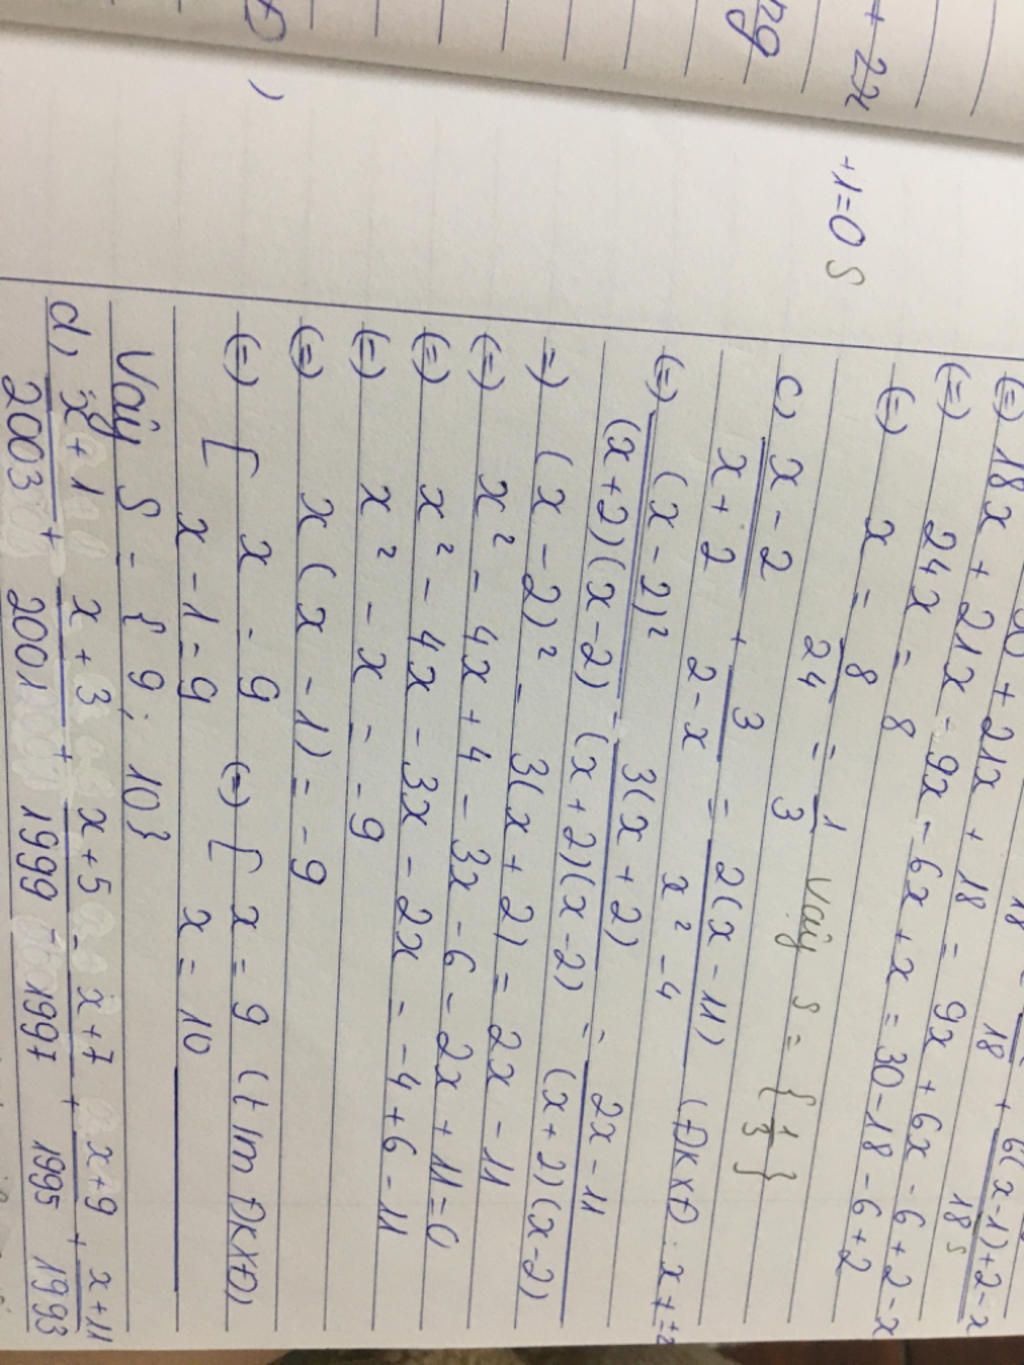 + 2x
ng
+1=0 S
18
(=) 18x + 21x + 18 = 9x + 6x - 6 + 2 - x
(=) 24x = 8
(=) x = 8/24 = 1/3 Vậy S = {1/3}
c) x - 2/x + 2 + 3/2 - x = 2(x - 11)/x² - 4 (ĐKXĐ: x ≠ ±2)
(=) (x - 2)²/(x + 2)(x - 2) - 3(x + 2)/(x + 2)(x - 2) = 2x - 11/(x + 2)(x - 2)
=) (x - 2)² - 3(x + 2) = 2x - 11
(=) x² - 4x + 4 - 3x - 6 - 2x + 11 = 0
(=) x² - 4x - 3x - 2x = -4 + 6 - 11
(=) x² - x = -9
(=) x(x - 1) = -9
(=) [ x = 9 (=) [ x = 9 (t/m ĐKXĐ)
x - 1 = 9 x = 10
Vậy S = {9; 10}
d) x + 1/2003 + x + 3/2001 + x + 5/1999 = x + 7/1997 + x + 9/1995 + x + 11/1993